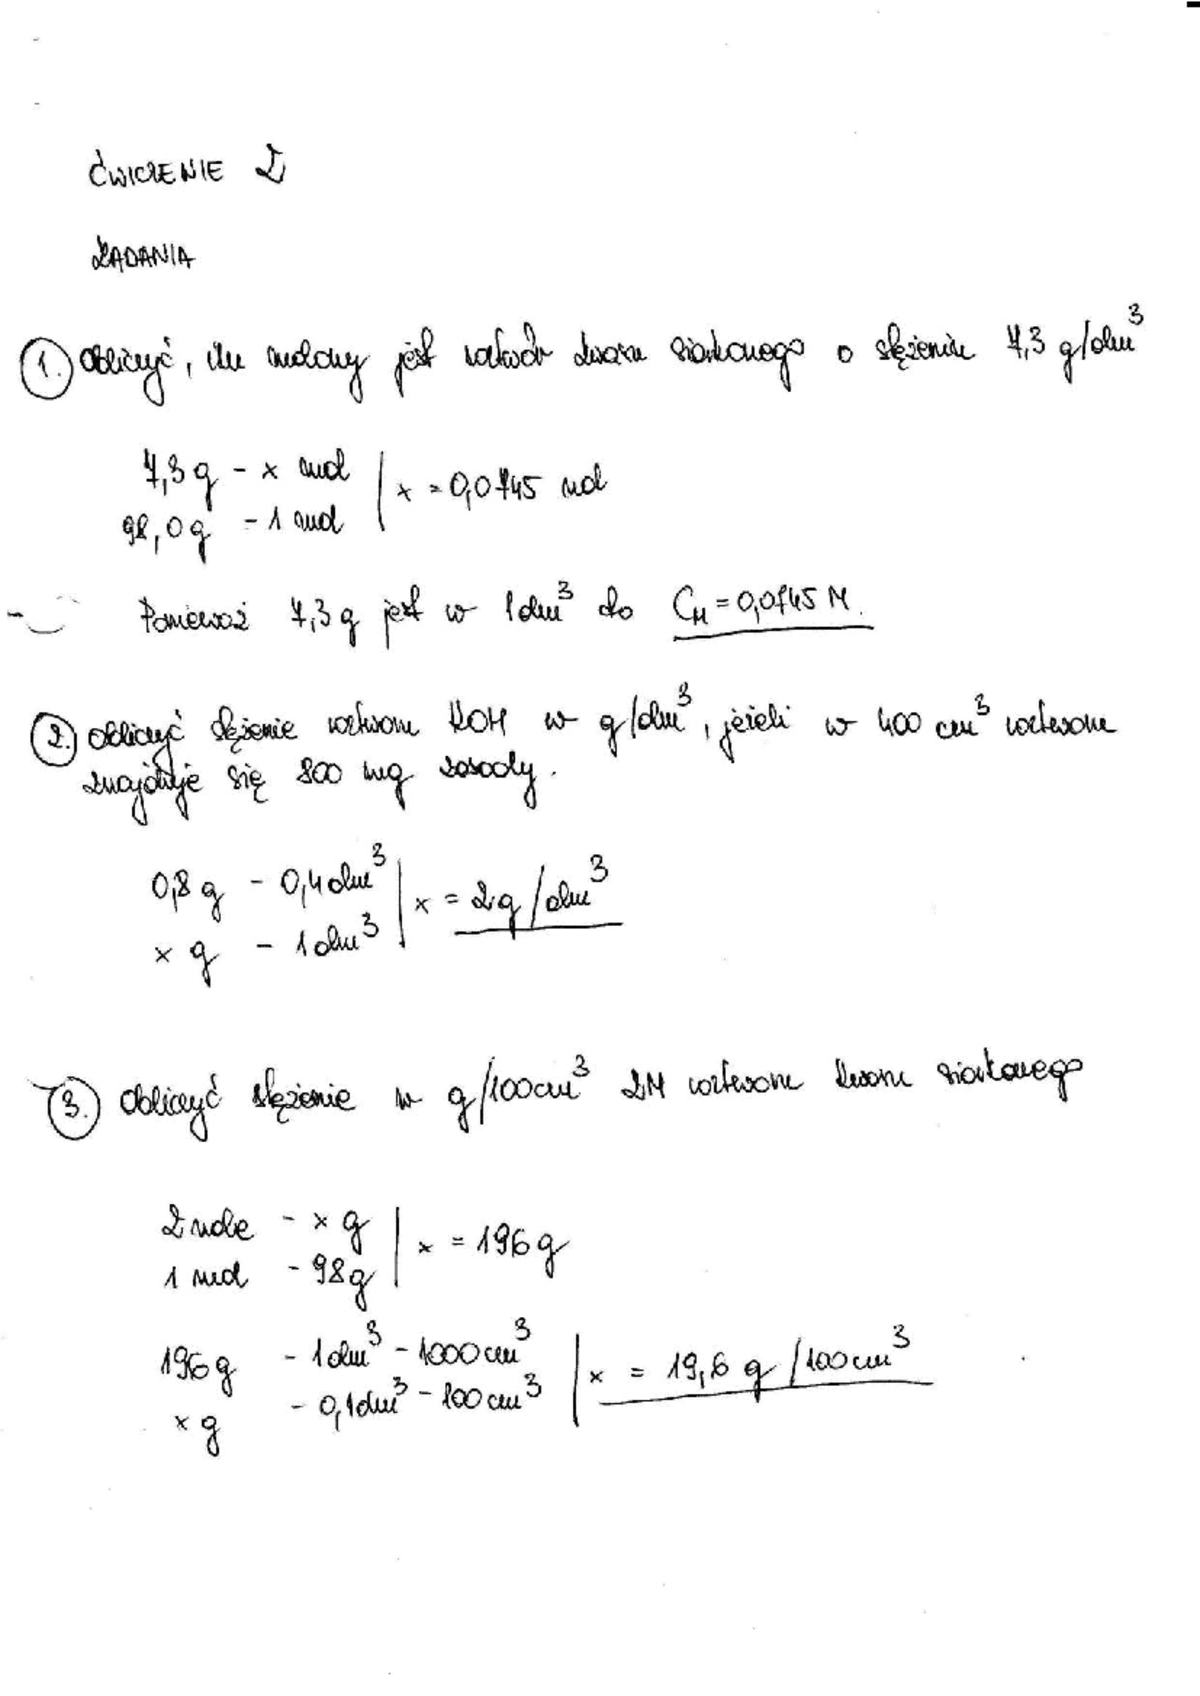 ĆWICZENIE I
ZADANIA
1. Obliczyć, ilu molowy jest roztwór kwasu siarkowego o stężeniu 7,3 g/dm³
7,3 g - x mol | x = 0,0745 mol
98,0 g - 1 mol
Ponieważ 7,3 g jest w 1 dm³ to C_M = 0,0745 M.
2. Obliczyć stężenie roztworu KOH w g/dm³, jeżeli w 400 cm³ roztworu
znajduje się 800 mg zasady.
0,8 g - 0,4 dm³ | x = 2 g/dm³
x g - 1 dm³
3. Obliczyć stężenie w g/100 cm³ 2M roztworu kwasu siarkowego
2 mole - x g | x = 196 g
1 mol - 98 g
196 g - 1 dm³ - 1000 cm³ | x = 19,6 g/100 cm³
x g - 0,1 dm³ - 100 cm³